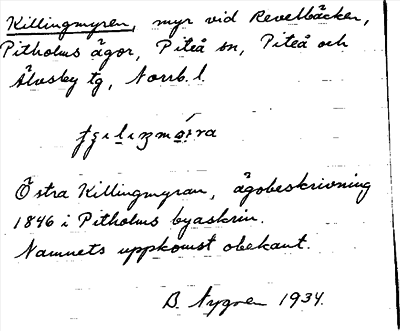 Killingmyren, myr vid Revelbäcken,
Pitholms ägor, Piteå sn, Piteå och
Älvsby tg, Norrb. l.
Östra Killingmyran, ägobeskrivning
1846 i Pitholms byaskrin.
Namnets uppkomst obekant.
B. Nygren 1934.